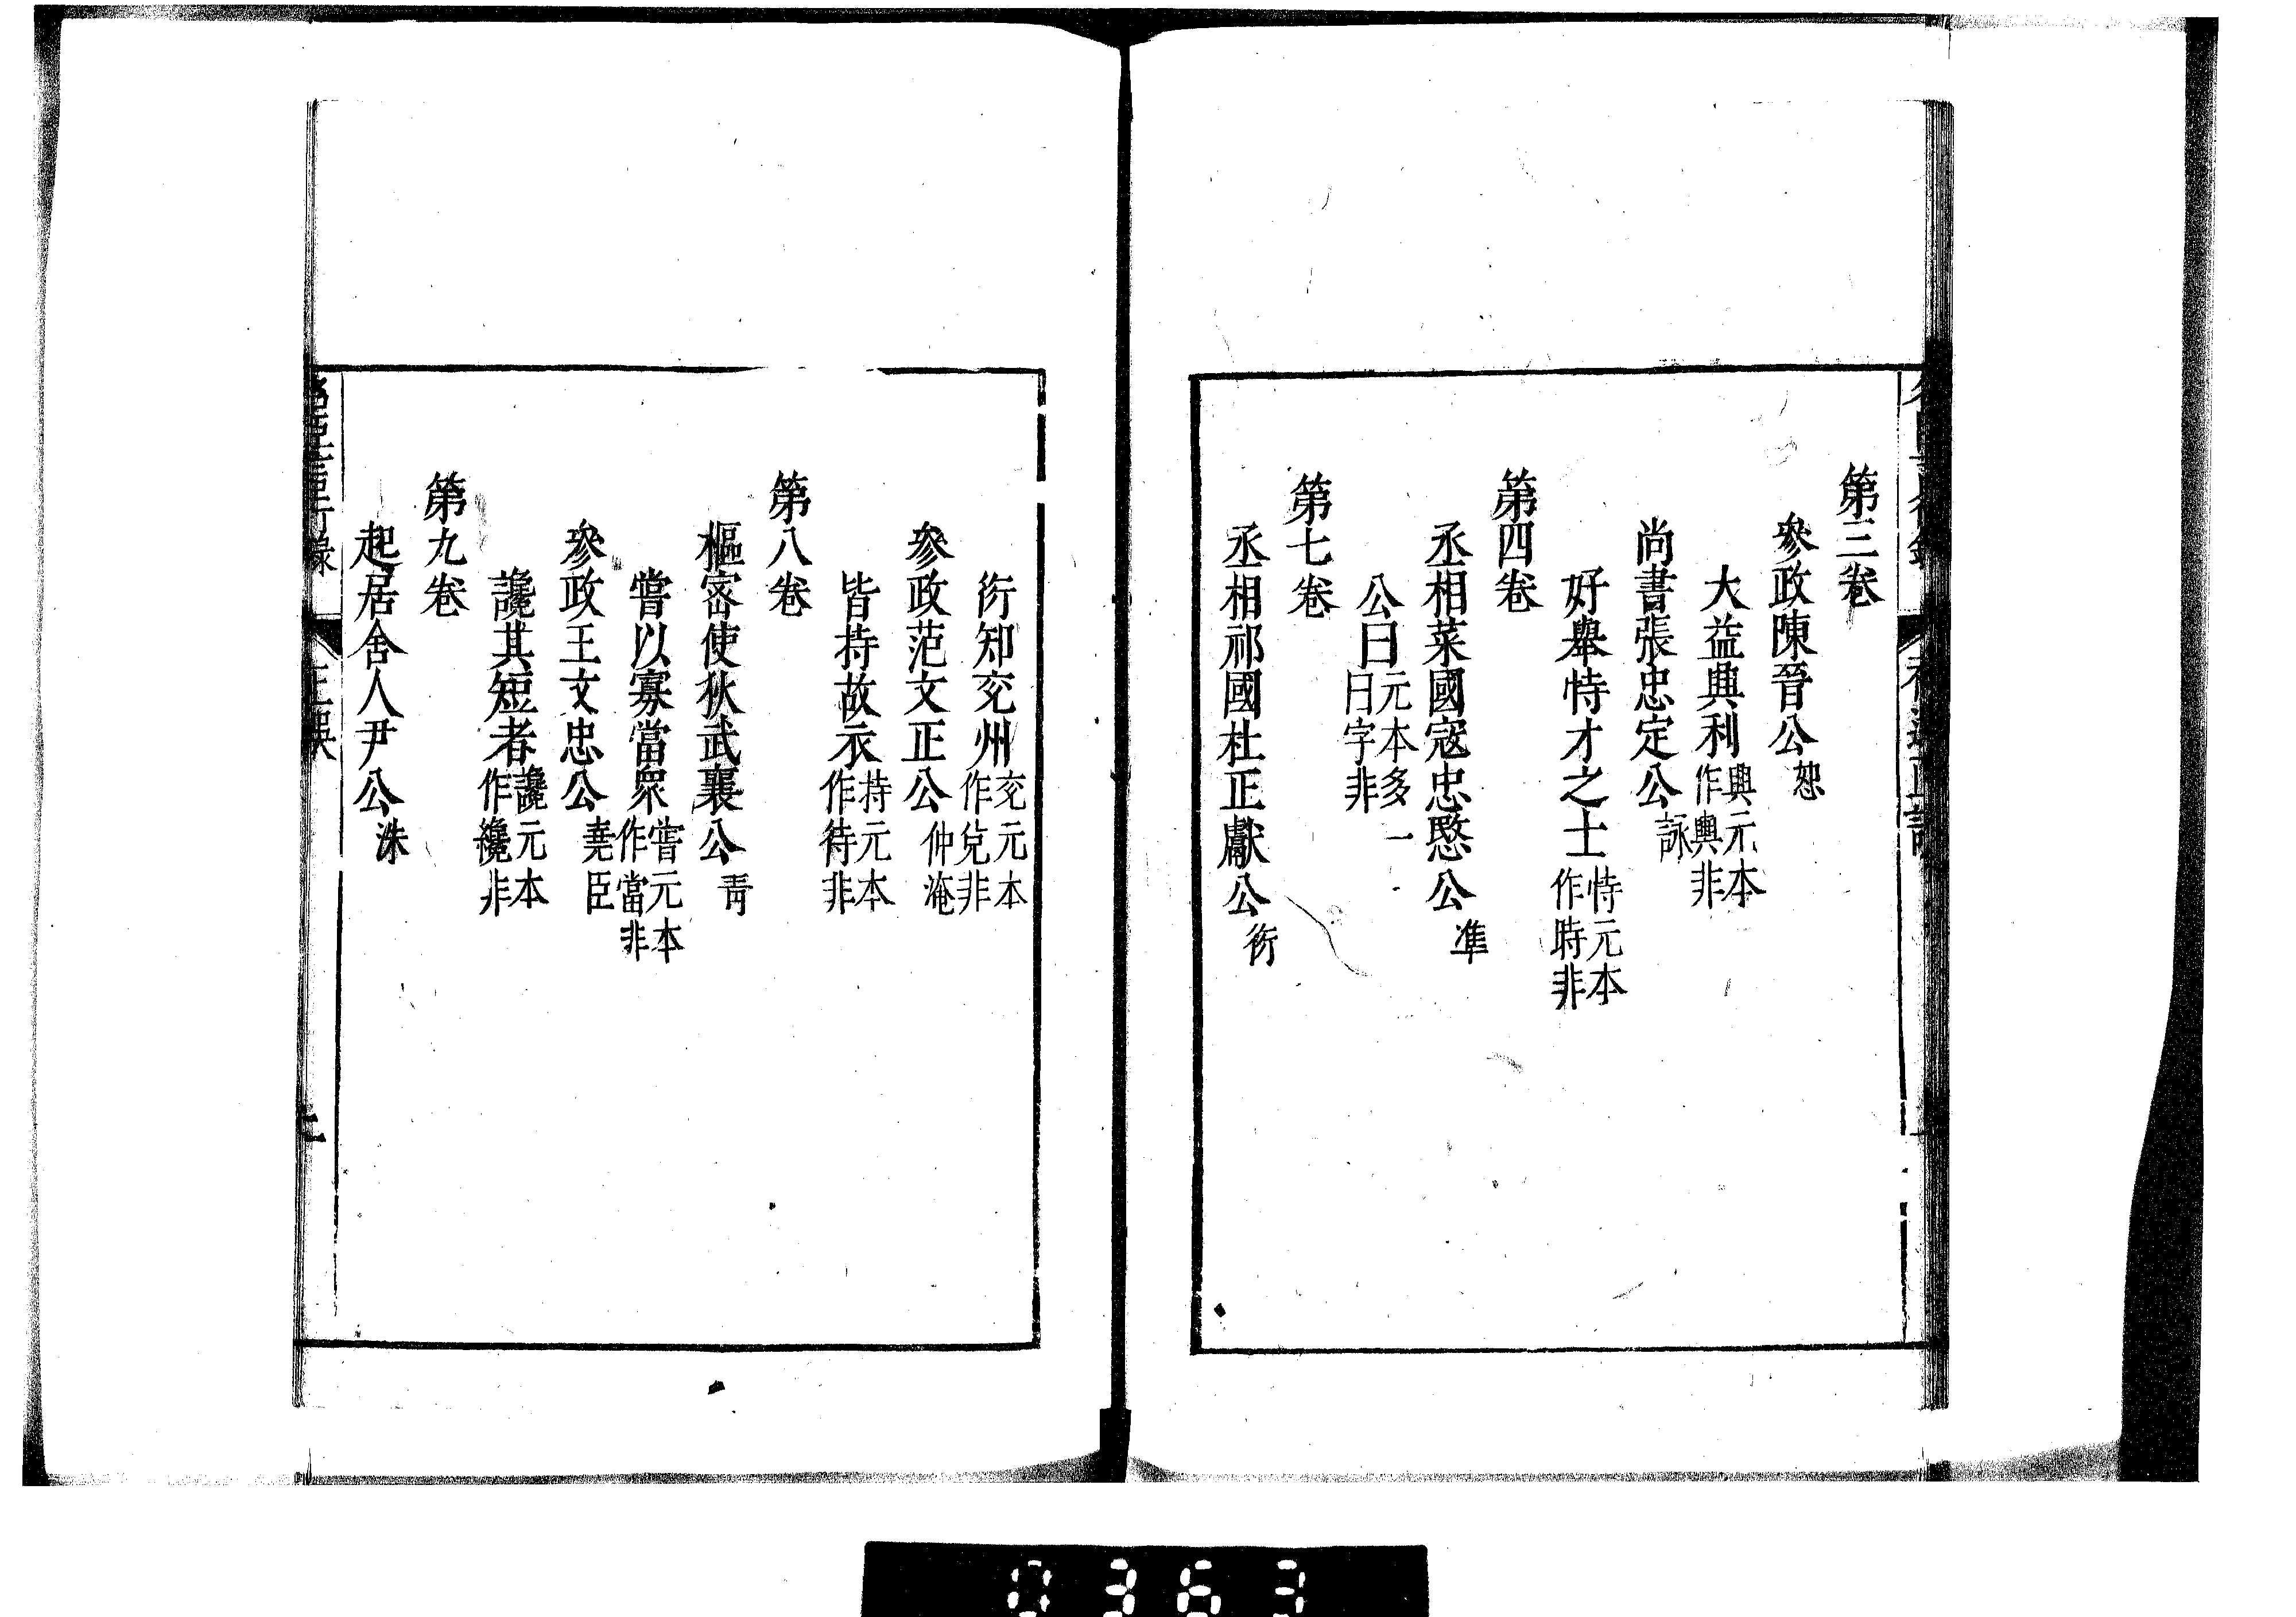 第三卷
參政陳晉公恕
大益興利興元本作輿非
尚書張忠定公詠
好舉恃才之士恃元本作時非
第四卷
丞相萊國寇忠愍公準
公曰元本多一日字非
第七卷
丞相祁國杜正獻公衍
衍知兗州兗元本作兌非
參政范文正公仲淹
皆持故示持元本作待非
第八卷
樞密使狄武襄公青
嘗以寡當眾嘗元本作當非
參政王文忠公堯臣
讒其短者讒元本作纔非
第九卷
起居舍人尹公洙
二
0363